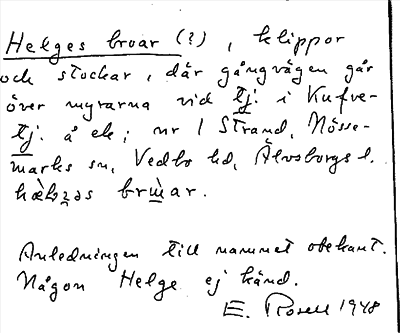 Helges broar (?), klippor
och stockar, där gångvägen går
över myrarna vid tj. i Kufve-
tj. å ek; nr 1 Strand, Nösse-
marks sn, Vedbo hd, Älvsborgs l.
brùar.
Anledningen till namnet obekant.
Någon Helge ej känd.
E. Rosell 1948